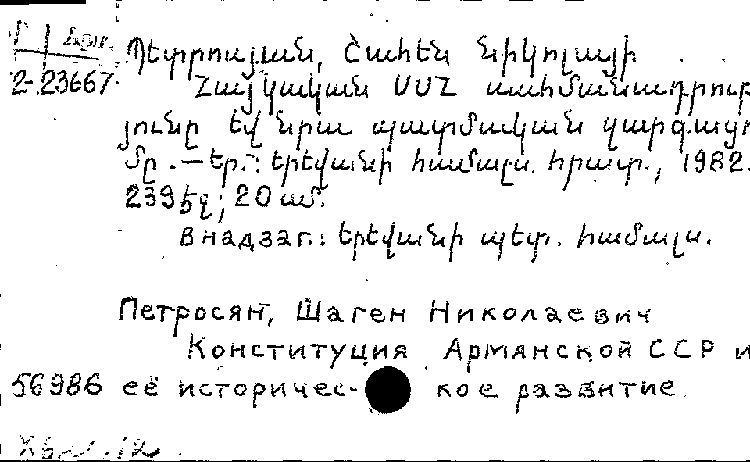 2-23667
Պետրոսյան, Շահեն Նիկոլայի
Հայկական ՍՍՀ սահմանադրութ
յունը եվ նրա պատմական զարգացո
մը. — Եր.: Երեվանի համալս. հրատ., 1982.
239 եջ; 20 սմ.
В надзаг.: Երեվանի պետ. համալս.
Петросян, Шаген Николаевич
Конституция Армянской ССР и
56986 её историчес- кое развитие.